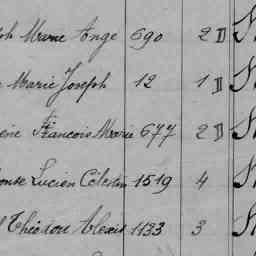 Marie Ange 690 2 D
Marie Joseph 12 1 D
François Marie 677 2 D
Lucien Célestin 1519 4
Théodore Alexis 1133 3